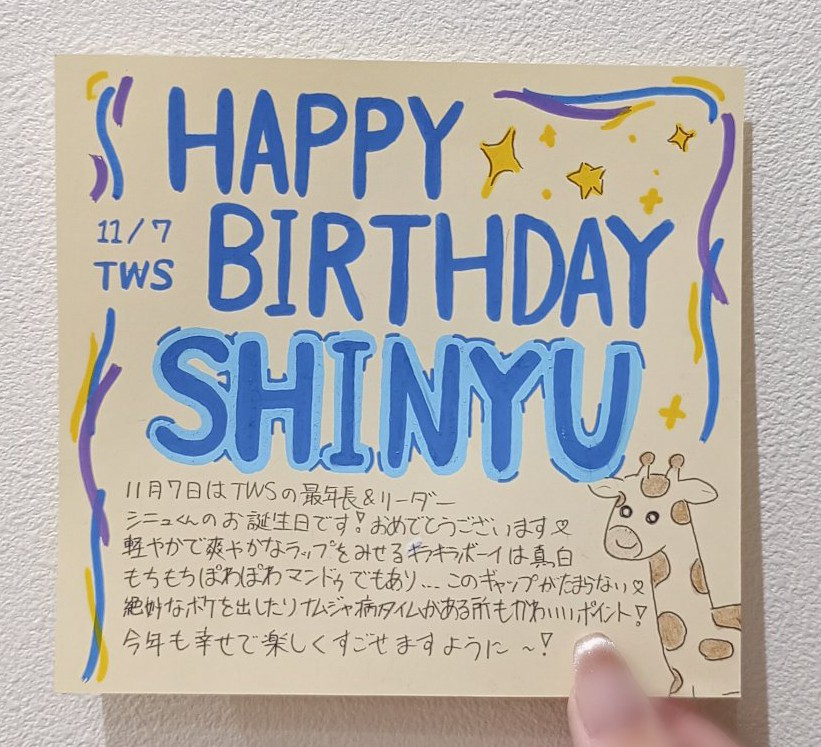 HAPPY
11/7
TWS
BIRTHDAY
SHINYU
11月7日はTWSの最年長&リーダー
シニュくんのお誕生日です!おめでとうございます♡
軽やかで爽やかなラップをみせるキラキラボーイは真白
もちもちぽわぽわマンドゥでもあり...このギャップがたまらない♡
絶妙なボケを出したりナムジャ病タイムがある所もかわいいポイント!
今年も幸せで楽しくすごせますように~!